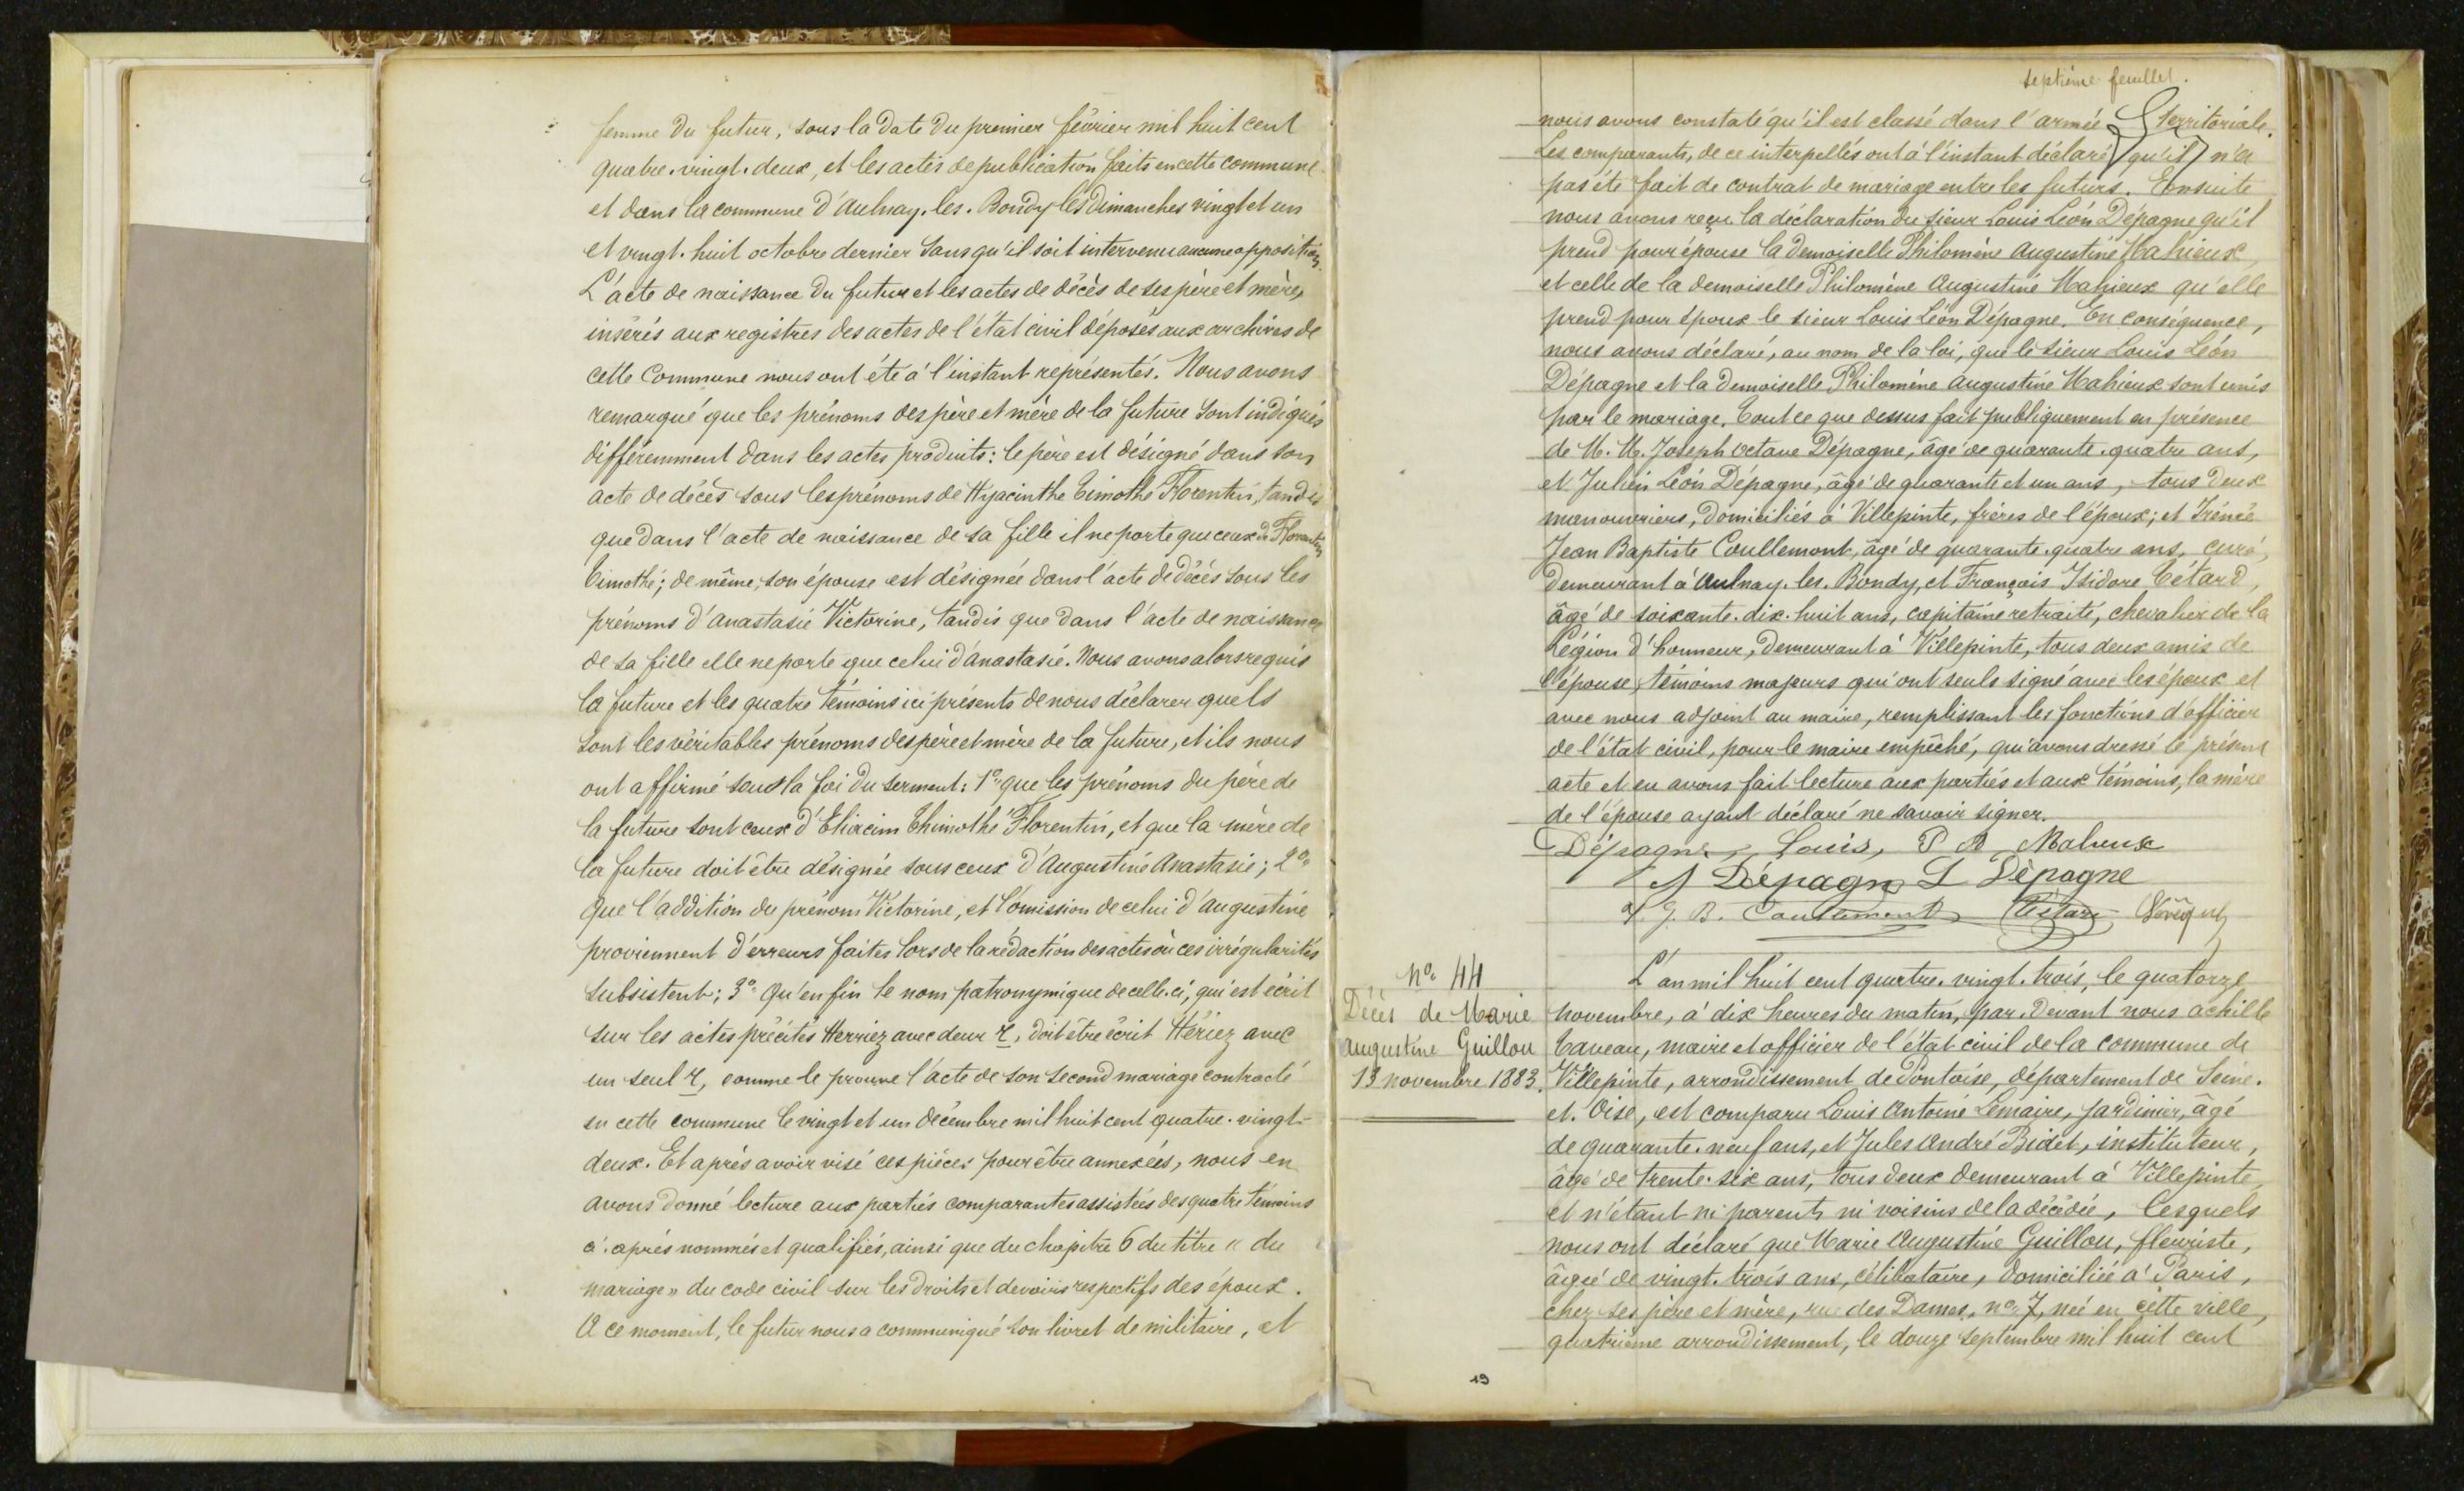 femme du futur, sous la date du premier février mil huit cent
quatre-vingt-deux, et les actes de publication faits en cette commune
et dans la commune d'Aulnay-les-Bondy les Dimanches vingt et un
et vingt-huit octobre dernier sans qu'il soit intervenu aucune opposition.
L'acte de naissance du futur et les actes de décès de ses père et mère,
insérés aux registres des actes de l'état civil déposés aux archives de
cette Commune nous ont été à l'instant représentés. Nous avons
remarqué que les prénoms des père et mère de la future sont indiqués
différemment dans les actes produits: le père est désigné dans son
acte de décès sous les prénoms de Hyacinthe Timothé Florentin, tandis
que dans l'acte de naissance de sa fille il ne porte que ceux de Florentin
Timothé; de même, son épouse est désignée dans l'acte de décès sous les
prénoms d'anastasie Victorine, tandis que dans l'acte de naissance
de sa fille elle ne porte que celui d'anastasie. Nous avons alors requis
la future et les quatre témoins ici présents de nous déclarer quels
sont les véritables prénoms des père et mère de la future, et ils nous
ont affirmé sous la foi du serment: 1° que les prénoms du père de
la future sont ceux d'Eliacim Thimothé Florentin, et que la mère de
la future doit être désignée sous ceux d'Augustine Anastasie; 2°
Que l'addition du prénom Victorine, et l'omission de celui d'augustine
proviennent d'erreurs faites lors de la rédaction des actes où ces irrégularités
subsistent; 3° Qu'enfin le nom patronymique de celle-ci, qui est écrit
sur les actes précités Herriez avec deux r, doit être écrit Hériez avec
un seul r, comme le prouve l'acte de son second mariage contracté
en cette commune le vingt et un décembre mil huit cent quatre-vingt-
deux. Et après avoir visé ces pièces pour être annexées, nous en
avons donné lecture aux parties comparantes assistées des quatre témoins
ci-après nommés et qualifiés, ainsi que du chapitre 6 du titre « du
mariage » du code civil sur les droits et devoirs respectifs des époux.
A ce moment, le futur nous a communiqué son livret de militaire, et
septième feuillet.
nous avons constaté qu'il est classé dans l'armée territoriale.
Les comparants, de ce interpellés ont à l'instant déclaré qu'il n'a
pas été fait de contrat de mariage entre les futurs. Ensuite
nous avons reçu la déclaration du sieur Louis Léon Dépagne qu'il
prend pour épouse la demoiselle Philomène Augustine Mahieux
et celle de la demoiselle Philomène Augustine Mahieux qu'elle
prend pour époux le sieur Louis Léon Dépagne. En conséquence,
nous avons déclaré, au nom de la loi, que le sieur Louis Léon
Dépagne et la demoiselle Philomène augustine Mahieux sont unis
par le mariage. Tout ce que dessus fait publiquement en présence
de M. M. Joseph octave Dépagne, âgé de quarante-quatre ans,
et Julien Léon Dépagne, âgé de quarante et un ans, tous deux
manouvriers, domiciliés à Villepinte, frères de l'époux; et Irénée
Jean Baptiste Coullemont, âgé de quarante-quatre ans, curé,
Demeurant à Aulnay-les-Bondy, et François Isidore Tétard,
âgé de soixante-dix-huit ans, capitaine retraité, chevalier de la
Légion d'honneur, Demeurant à Villepinte, tous deux amis de
l'épouse, témoins majeurs qui ont seuls signé avec les époux et
avec nous adjoint au maire, remplissant les fonctions d'officier
de l'état civil, pour le maire empêché, qui avons dressé le présent
acte et en avons fait lecture aux parties et aux témoins, la mère
de l'épouse ayant déclaré ne savoir signer.
Dépagne, Louis, P A, Mahieux
Dépagne L Dépagne
J. B. Coullemont Tétard
N° 44
Décès de Marie
augustine Guillou
13 novembre 1883.
L'an mil huit cent quatre-vingt-trois, le quatorze
novembre, à dix heures du matin, par-Devant nous achille
Caveau, maire et officier de l'état civil de la commune de
Villepinte, arrondissement de Pontoise, département de Seine-
et-Oise, est comparu Louis Antoine Lemaire, jardinier, âgé
de quarante-neuf ans, et Jules André Bidet, instituteur,
âgé de trente-six ans, tous deux demeurant à Villepinte,
et n'étant ni parents ni voisins de la décédée, lesquels
nous ont déclaré que Marie Augustine Guillou, fleuriste,
âgée de vingt-trois ans, célibataire, domiciliée à Paris,
chez ses père et mère, rue des Dames, n° 7, née en cette ville,
quatrième arrondissement, le douze septembre mil huit cent
19